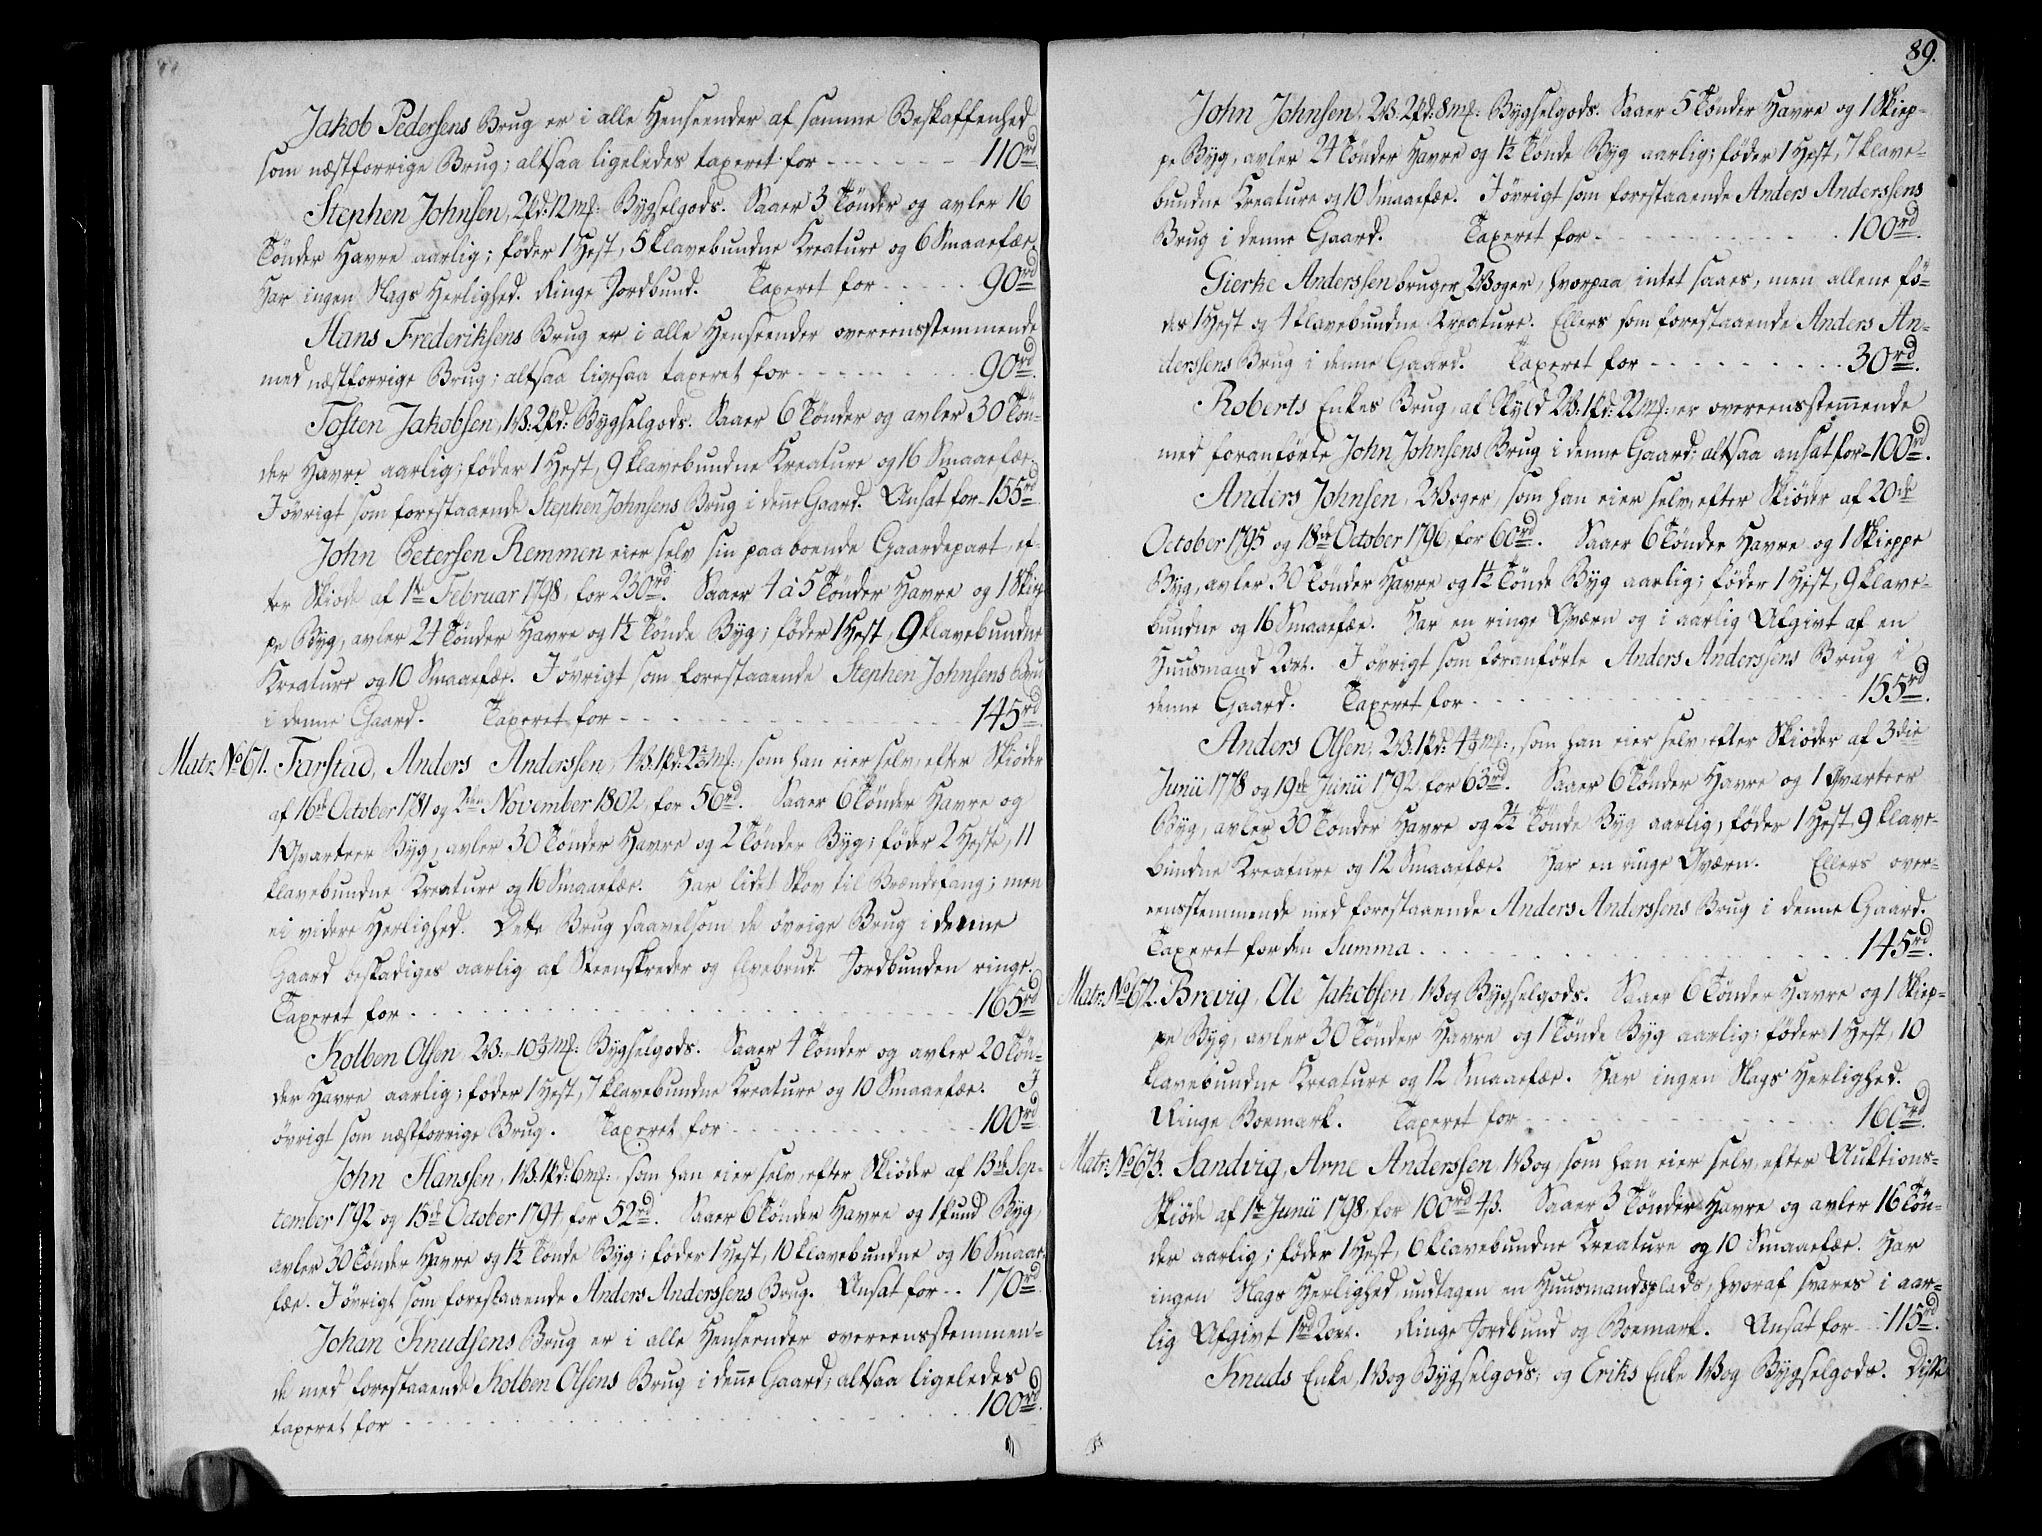 Jakob Pedersens Brug er i alle Henseender af samme Beskaffenhed
som næstforrige Brug; altsaa ligeledes taxeret for - - - - - - 110rd.
Stephen Johnsen, 2pd: 12mk: Bygselgods. Saaer 3 Tønder og avler 16
Tønder Havre aarlig; føder 1 Hest, 5 klavebundne Kreature og 6 Smaafæe.
Har ingen Slags Herlighed. Ringe Jordbund. Taxeret for - - - - - 90rd.
Hans Frederiksens Brug er i alle Henseender overeensstemmende
med næstforrige Brug; altsaa ligesaa taxeret for - - - - - - - - 90rd.
Tosten Jakobsen, 1V: 2pd: Bygselgods. Saaer 6 Tønder og avler 30 Tøn-
der Havre aarlig; føder 1 Hest, 9 klavebundne Kreature og 16 Smaaefæe.
I øvrigt som forestaaende Stephen Johnsens Brug i deñe Gaard. Ansat for - 155rd.
John Petersen Remmen eier selv sin paaboende Gaardepart, ef-
ter Skiøde af 1te Februar 1798, for 230rd. Saaer 4 a 5 Tønder Havre og 1 Skiep-
pe Byg, avler 24 Tønder Havre og 1½ Tønde Byg; føder 1 Hest, 9 klavebundne
Kreature og 10 Smaaefæe. I øvrigt som forestaaende Stephen Johnsens Brug
i denne Gaard. Taxeret for - - - - - - - - - - - - - - - 145rd.
Matr: No 671. Farstad, Anders Anderssen, 4V: 1pd: 2⅔mk:, som han eier selv, efter Skiøder
af 16de October 1781 og 2den November 1802, for 56rd. Saaer 6 Tønder Havre og
1 Qvarteer Byg, avler 30 Tønder Havre og 2 Tønder Byg; føder 2 Heste, 11
klavebundne Kreature og 16 Smaaefæe. Har lidet Skov til Brændefang; men
ei videre Herlighed. Dette Brug saavelsom de øvrige Brug i denne
Gaard beskadiges aarlig af Steenskreder og Elvebrud. Jordbunden ringe.
Taxeret for - - - - - - - - - - - - - - - - - - - - - 165rd.
Kolben Olsen, 2V: 10⅔mk: Bygselgods. Saaer 4 Tønder og avler 20 Tøn-
der Havre aarlig; føder 1 Hest, 7 klavebundne Kreature og 10 Smaaefæe. I
øvrigt som næstforrige Brug. Taxeret for - - - - - - - - - - 100rd.
John Hanssen, 1V: 1pd: 6mk:, som han eier selv, efter Skiøder af 13de Sep-
tember 1792 og 15de October 1794, for 52rd. Saaer 6 Tønder Havre og 1 Pund Byg,
avler 30 Tønder Havre og 1½ Tønde Byg; føder 1 Hest, 10 klavebundne og 16 Smaae-
fæe. I øvrigt som forestaaende Anders Anderssens Brug. Ansat for - - 170rd.
Johan Knudsens Brug er i alle Henseender overeensstemmen-
de med forestaaende Kolben Olsens Brug i deñe Gaard; altsaa ligeledes
taxeret for - - - - - - - - - - - - - - - - - - - - - 100rd.
89.
John Johnsen, 2V: 2pd: 8mk: Bygselgods. Saaer 5 Tønder Havre og 1 Skiep-
pe Byg, avler 24 Tønder Havre og 1½ Tønde Byg aarlig; føder 1 Hest, 7 klave-
bundne Kreature og 10 Smaaefæe. I øvrigt som forestaaende Anders Anderssens
Brug i denne Gaard. Taxeret for - - - - - - - - - - - 100rd.
Gierke Anderssen bruger 2 Voger, hvorpaa intet saaes, men allene fø-
des 1 Hest og 4 klavebundne Kreature. Ellers som forestaaende Anders An-
derssens Brug i denne Gaard. Taxeret for - - - - - - - - - 30rd.
Roberts Enkes Brug, af Skyld 2V: 1pd: 22mk:, er overeensstem̃ende
med foranførte John Johnsens Brug i denne Gaard; altsaa ansat for - 100rd.
Anders Johnsen, 2 Voger, som han eier selv, efter Skiøder af 20de
October 1795 og 18de October 1796, for 60rd. Saaer 6 Tønder Havre og 1 Skieppe
Byg, avler 30 Tønder Havre og 1½ Tønde Byg aarlig; føder 1 Hest, 9 klave-
bundne og 16 Smaaefæe. Har en ringe Qværn og i aarlig Afgivt af en
Huusmand 2 ort. I øvrigt som foranførte Anders Anderssens Brug i
denne Gaard. Taxeret for - - - - - - - - - - - - - - - 155rd.
Anders Olsen, 2V: 1pd: 4⅓mk:, som han eier selv, efter Skiøder af 3die
Junii 1778 og 19de Junii 1792, for 63rd. Saaer 6 Tønder Havre og 1 Qvarteer
Byg, avler 30 Tønder Havre og 2½ Tønde Byg aarlig; føder 1 Hest, 9 klave-
bundne Kreature og 12 Smaaefæe. Har en ringe Qværn. Ellers over-
eensstemmende med forestaaende Anders Anderssens Brug i denne Gaard.
Taxeret for den Summa - - - - - - - - - - - - - - - - 145rd.
Matr: No 672. Brevig, Ole Jakobsen, 1 Vog Bygselgods. Saaer 6 Tønder Havre og 1 Skiep-
pe Byg, avler 30 Tønder Havre og 1 Tønde Byg aarlig; føder 1 Hest, 10
klavebundne Kreature og 12 Smaaefæe. Har ingen Slags Herlighed.
Ringe Boemark. Taxeret for - - - - - - - - - - - - - - 160rd.
Matr: No 673. Sandvig, Arne Anderssen, 1 Vog, som han eier selv, efter Auktions-
Skiøde af 1te Junii 1798, for 100rd 4ß. Saaer 3 Tønder Havre og avler 16 Tøn-
der aarlig; føder 1 Hest, 6 klavebundne Kreature og 10 Smaaefæe. Har
ingen Slags Herlighed, undtagen en Huusmandsplads, hvoraf svares i aar-
lig Afgivt 1rd 2 ort. Ringe Jordbund og Boemark. Ansat for - - 115rd.
Knuds Enke, 1 Vog Bygselgods; og Eriks Enke 1 Vog Bygselgods. Disse